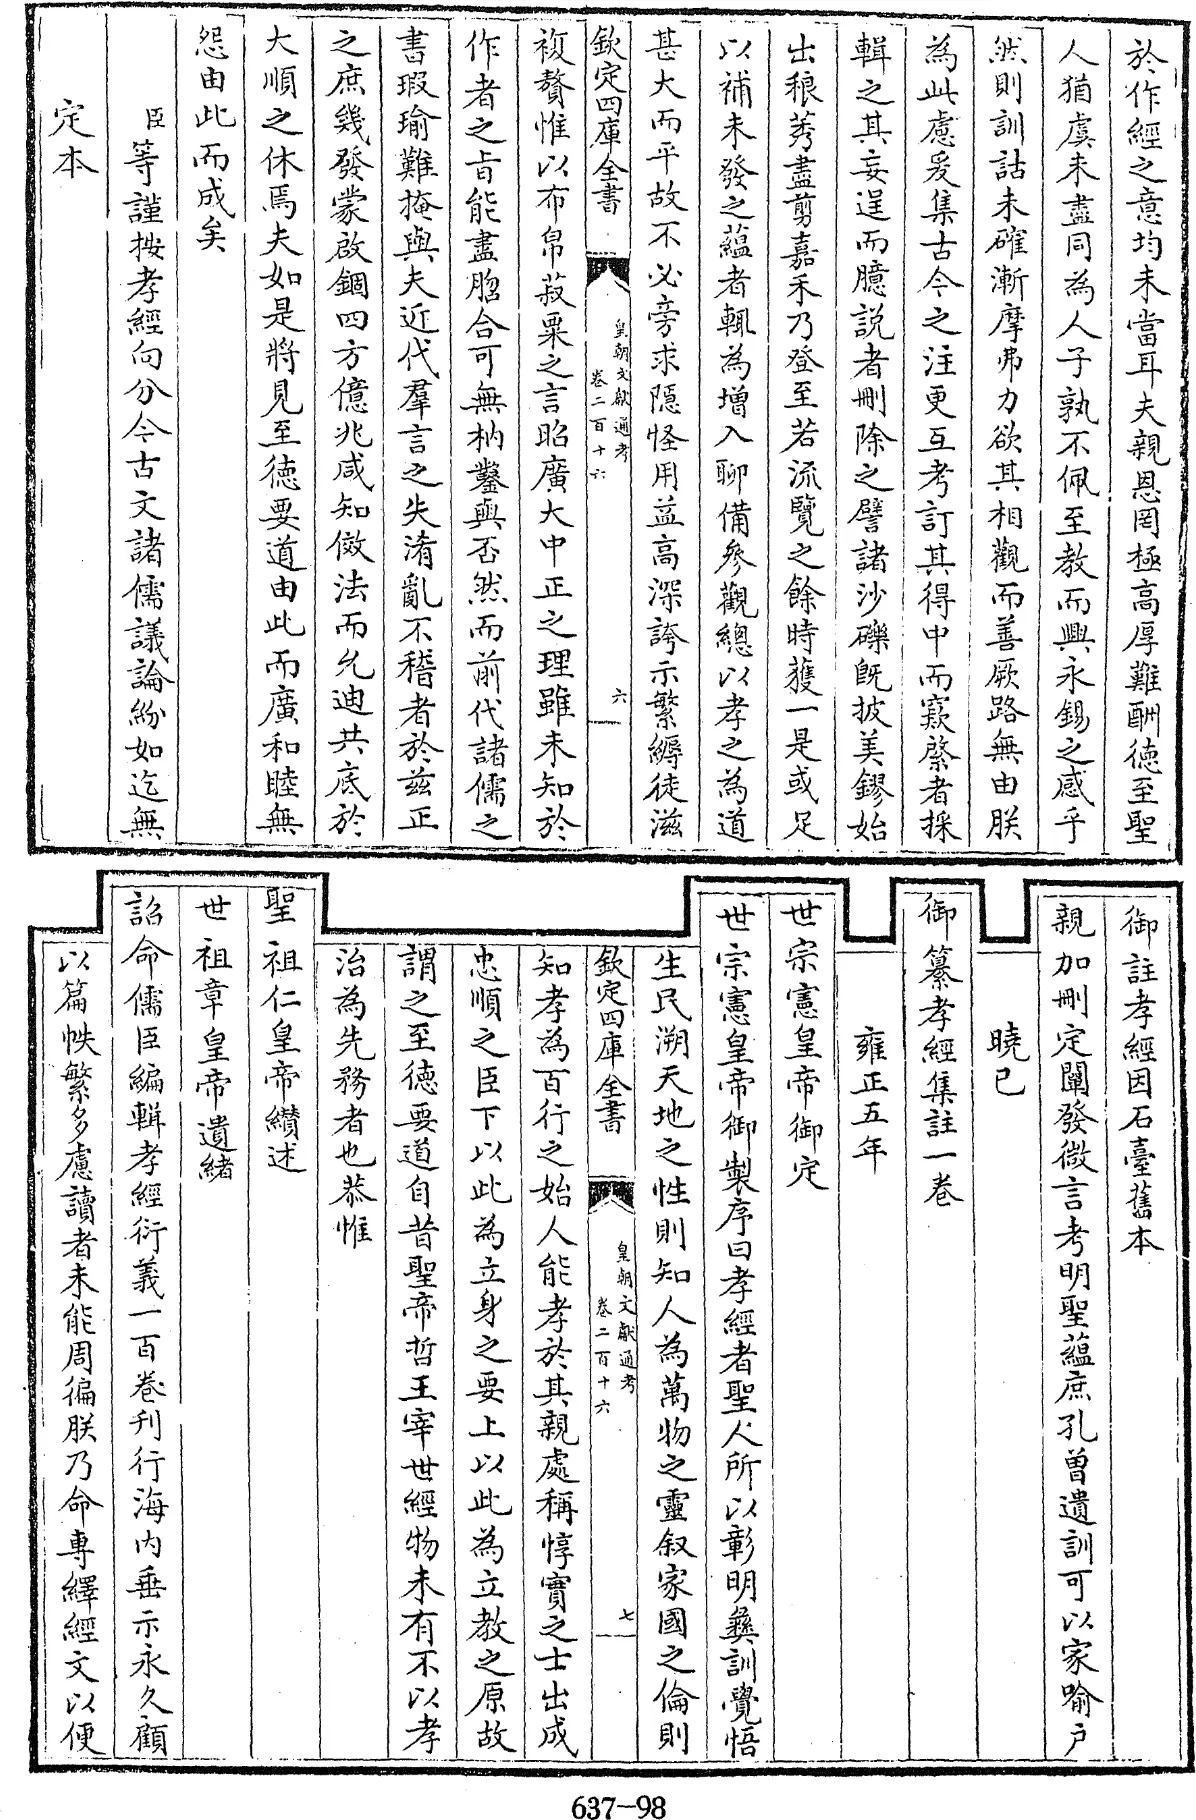 於作經之意均未當耳夫親恩罔極高厚難酬德至聖
人猶虞未盡同為人子孰不佩至教而興永錫之感乎
然則訓詁未確漸摩弗力欲其相觀而善厥路無由朕
為此慮爰集古今之注更互考訂其得中而窾綮者採
輯之其妄逞而臆説者刪除之譬諸沙礫既披美鏐始
出稂莠盡剪嘉禾乃登至若流覽之餘時獲一是或足
以補未發之蘊者輒為增入聊備參觀總以孝之為道
甚大而平故不必旁求隱怪用益高深誇示繁縟徒滋
欽定四庫全書
皇朝文獻通考
卷二百十六
六
複贅惟以布帛菽粟之言昭廣大中正之理雖未知於
作者之旨能盡脗合可無枘鑿與否然而前代諸儒之
書瑕瑜難掩與夫近代羣言之失淆亂不稽者於兹正
之庶幾發蒙啟錮四方億兆咸知傚法而允迪共底於
大順之休焉夫如是將見至德要道由此而廣和睦無
怨由此而成矣
臣等謹按孝經向分今古文諸儒議論紛如迄無
定本
御註孝經因石臺舊本
親加刪定闡發微言考明聖蘊庶孔曾遺訓可以家喻户
曉已
御纂孝經集註一卷
雍正五年
世宗憲皇帝御定
世宗憲皇帝御製序曰孝經者聖人所以彰明彝訓覺悟
生民溯天地之性則知人為萬物之靈叙家國之倫則
欽定四庫全書
皇朝文獻通考
卷二百十六
七
知孝為百行之始人能孝於其親處稱惇實之士出成
忠順之臣下以此為立身之要上以此為立教之原故
謂之至德要道自昔聖帝哲王宰世經物未有不以孝
治為先務者也恭惟
聖祖仁皇帝纘述
世祖章皇帝遺緒
詔命儒臣編輯孝經衍義一百卷刋行海内垂示永久顧
以篇帙繁多慮讀者未能周徧朕乃命專繹經文以便
637-98